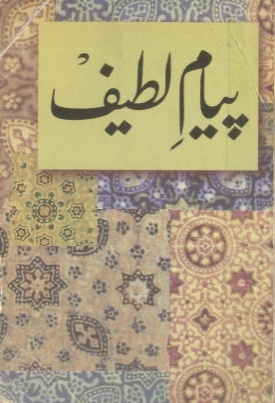 پیامِ لطیفؒ